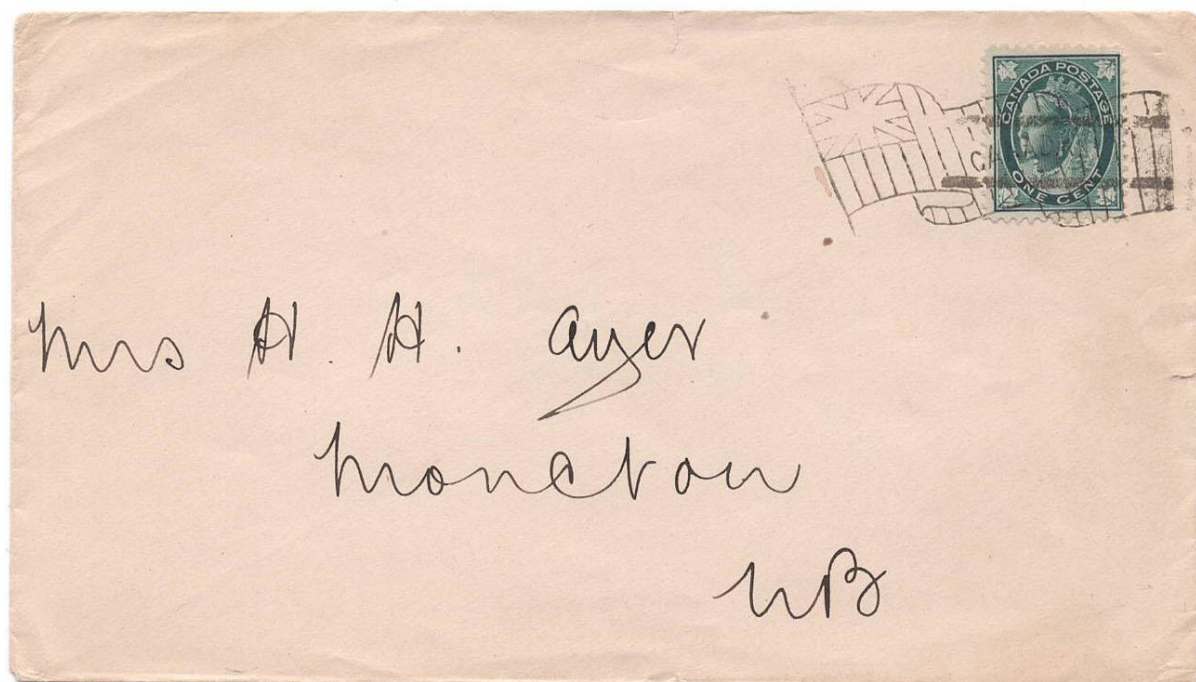 CANADA POSTAGE
CANADA
ONE CENT
Mrs H. H. Ayer
Moncton
NB